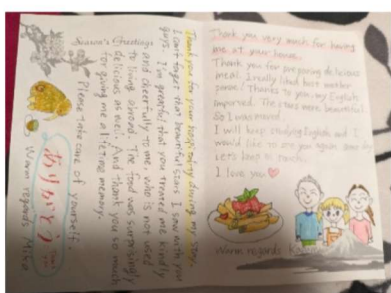 Season's Greetings
Thank you for your hospitality during my stay.
I can't forget that beautiful stars I saw with you
guys. I'm grateful that you treated me kindly
and cheerfully to me, who is not used
to living abroad. The food was surprisingly
delicious as well. And thank you so much
for giving me a lifetime memory.
Please take care of yourself.
ありがとう
Warm regards
Thank you very much for having
me at your house.
Thank you for preparing delicious
meal. I really liked host mother
Thanks to you, my English
improved. The stars were beautiful
So I was moved.
I will keep studying English and I
would like to see you again some day
Let's keep in touch.
I love you
Warm regards